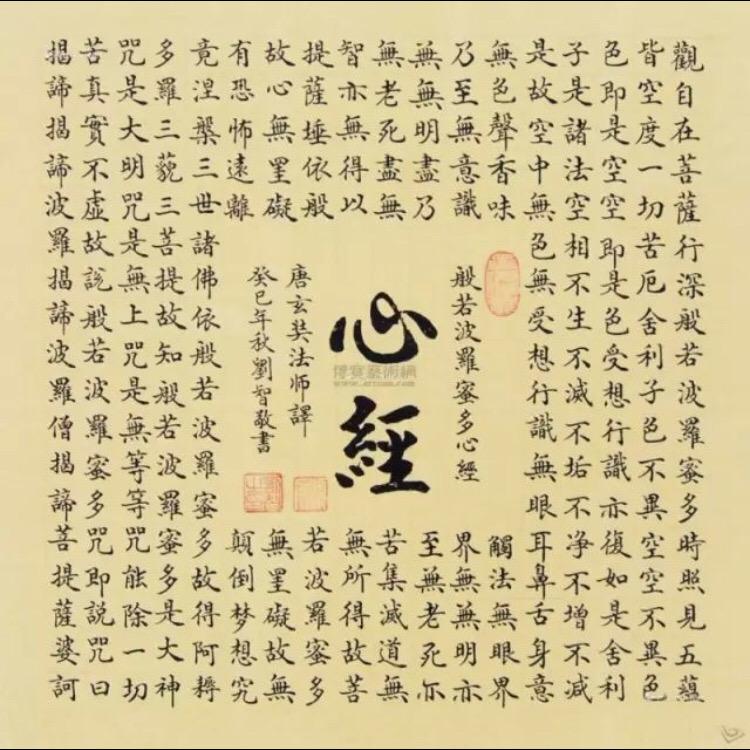 觀自在菩薩行深般若波羅蜜多時照見五蘊
皆空度一切苦厄舍利子色不異空空不異色
色即是空空即是色受想行識亦復如是舍利
子是諸法空相不生不滅不垢不净不增不减
是故空中無色無受想行識無眼耳鼻舌身意
無色聲香味
觸法無眼界
乃至無意識
界無無明亦
無無明盡乃
至無老死亦
無老死盡無
苦集滅道無
智亦無得以
無所得故菩
提薩埵依般
若波羅蜜多
故心無罣礙
無罣礙故無
有恐怖遠離
顛倒梦想究
竟涅槃三世諸佛依般若波羅蜜多故得阿耨
多羅三藐三菩提故知般若波羅蜜多是大神
咒是大明咒是無上咒是無等等咒能除一切
苦真實不虛故說般若波羅蜜多咒即說咒曰
揭諦揭諦波羅揭諦波羅僧揭諦菩提薩婆訶
般若波羅蜜多心經
心經
唐玄奘法師譯
癸巳年秋劉智敬書
博寶藝術網